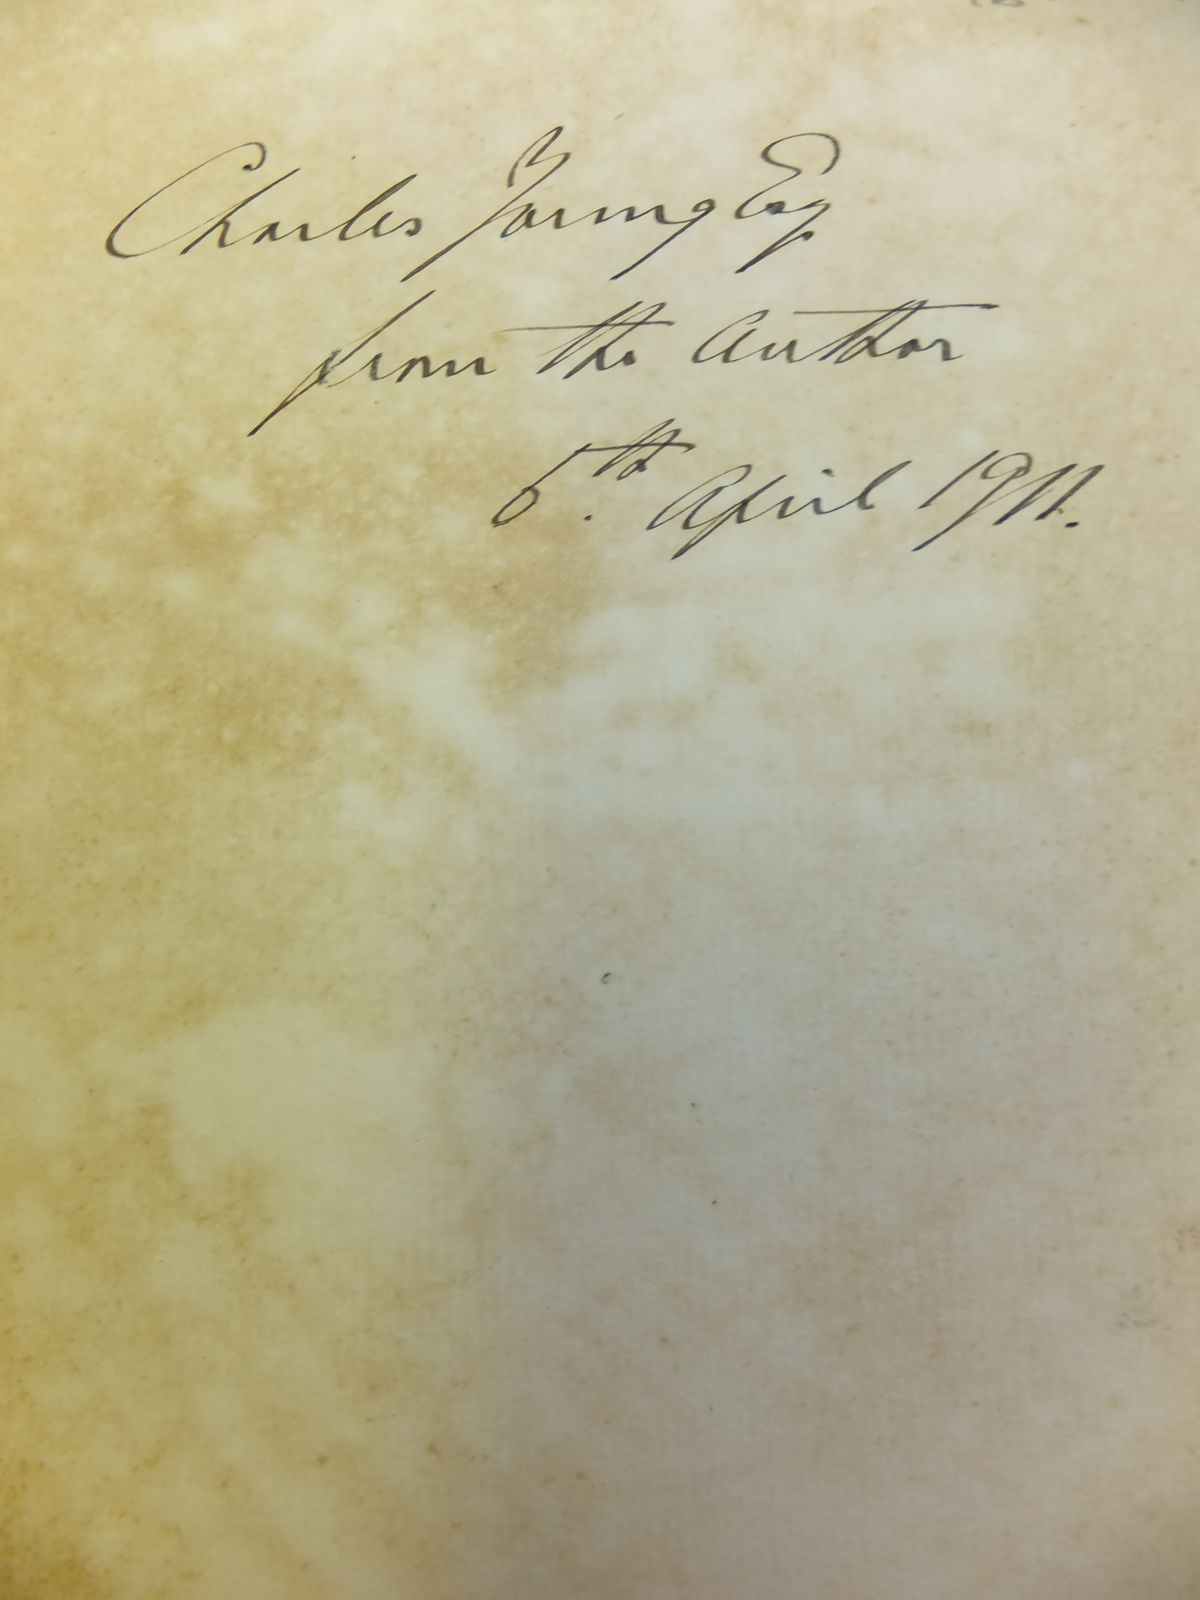 Charles Young Esq.
from the Author
5th. April 1911.